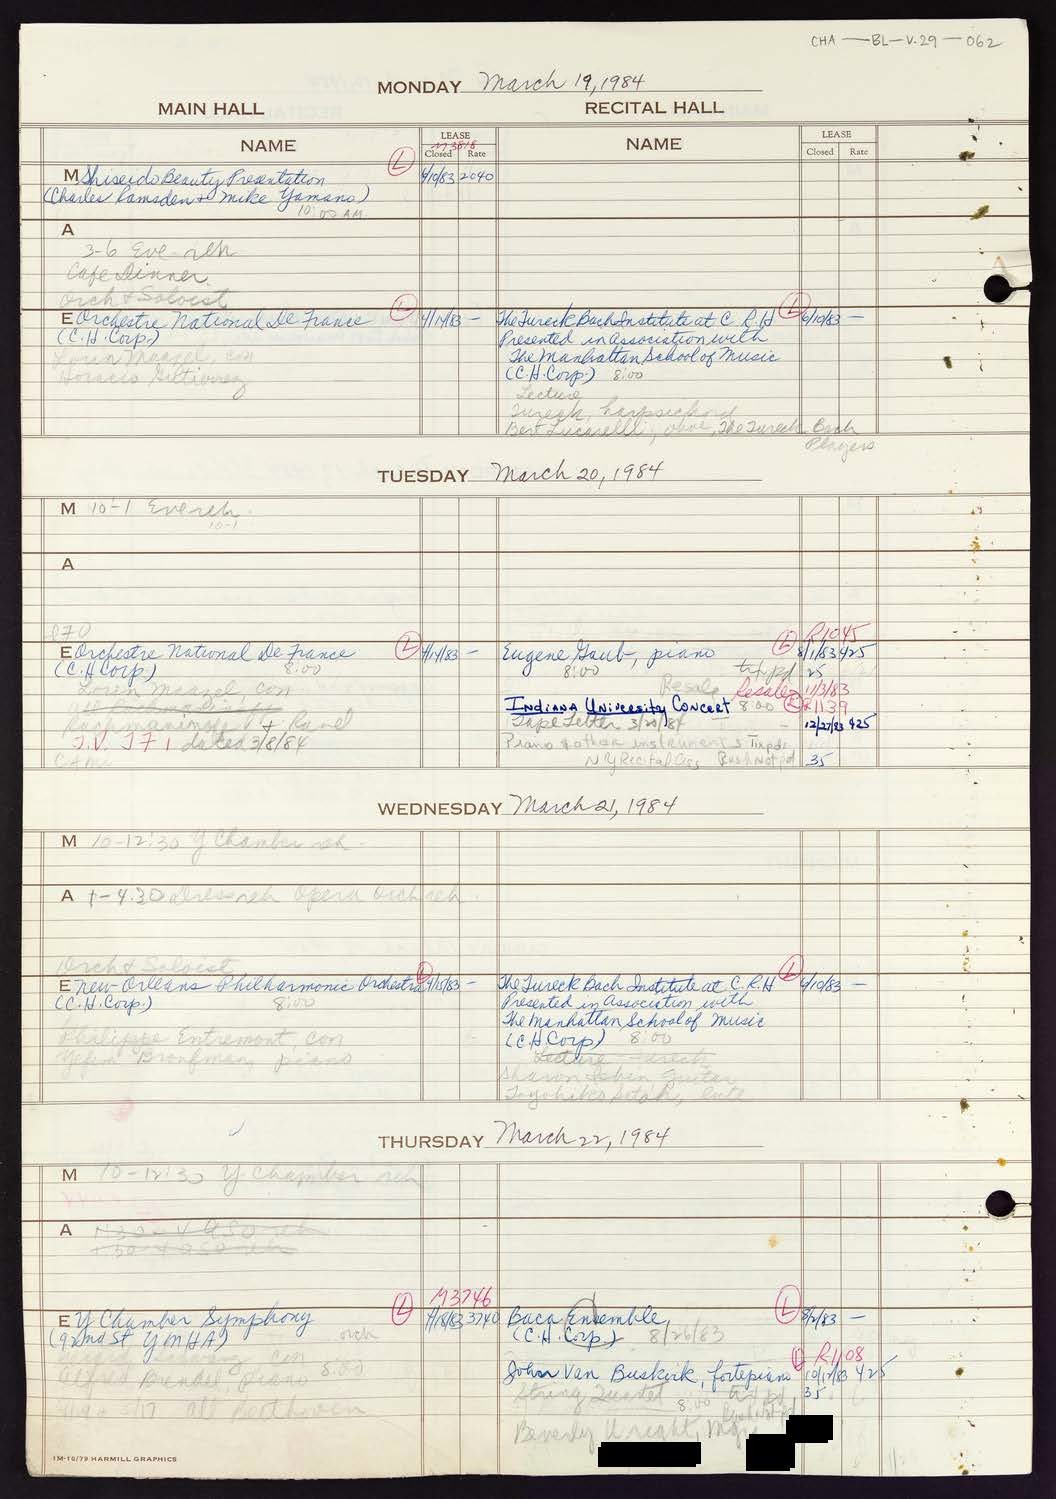 CHA — BL — V.29 — 062
MONDAY March 19, 1984
MAIN HALL
RECITAL HALL
NAME
LEASE
M3818
Closed Rate
NAME
LEASE
Closed Rate
M Shiseido Beauty Presentation (L) 4/10/83 2040
(Charles Ramsden + Mike Yamano)
10:00 AM
A
3-6 Eve reh
Cafe Dinner
Orch & Soloist
E Orchestre National De France (L) 4/14/83 —
(C.H. Corp.)
Lorin Maazel, con
Horacio Gutierrez
The Tureck Bach Institute at C.R.H (L) 6/10/83 —
Presented in association with
The Manhattan School of Music
(C.H. Corp.) 8:00
Lecture
Tureck, harpsichord
Bert Lucarelli, oboe, The Tureck Bach
Players
TUESDAY March 20, 1984
M 10-1 Eve reh
10-1
A
E Orchestre National De France (L) 4/14/83 —
(C.H Corp.) 8:00
Lorin Maazel, con
Rachmaninoff + Ravel
T.V. dated 3/8/84
CAMI
R1045
Eugene Gaub, piano (L) 8/1/83 425
8:00 txt pd 25
Resale Resale 11/3/83
Indiana University Concert 8:00 (L) R1139
Tape Letter 3/20/84 — 12/27/83 425
Piano & other instruments Tix pd
NY Recital Ass Bush Not pd 35
WEDNESDAY March 21, 1984
M 10-12:30 Y Chamber reh
A 1-4:30 Dress reh Opera Orch reh
Orch & Soloist
E New Orleans Philharmonic Orchestra (L) 4/15/83 —
(C.H. Corp.) 8:00
Philippe Entremont, con
Yefim Bronfman, piano
The Tureck Bach Institute at C.R.H (L) 6/10/83 —
Presented in Association with
The Manhattan School of Music
(C.H. Corp) 8:00
Lecture Tureck
Sharon Isbin Guitar
Toyohiko Satoh, lute
THURSDAY March 22, 1984
M 10-12:30 Y Chamber reh
A 1:30-4 ASO reh
1:30-4 ASO reh
M3746
E Y Chamber Symphony (L) 4/18/83 3740
(92nd St YMHA) orch
Alfred Brendel, piano 8:00
All Beethoven
Baca Ensemble, (L) 8/2/83 —
(C.H. Corp.) 8/26/83
(L) R1108
John Van Buskirk, fortepiano 10/12/83 425
String Quartet 8:00 txt pd 35
Book Not pd
Beverly Wright, Mgr
1M-10/79 HARMILL GRAPHICS